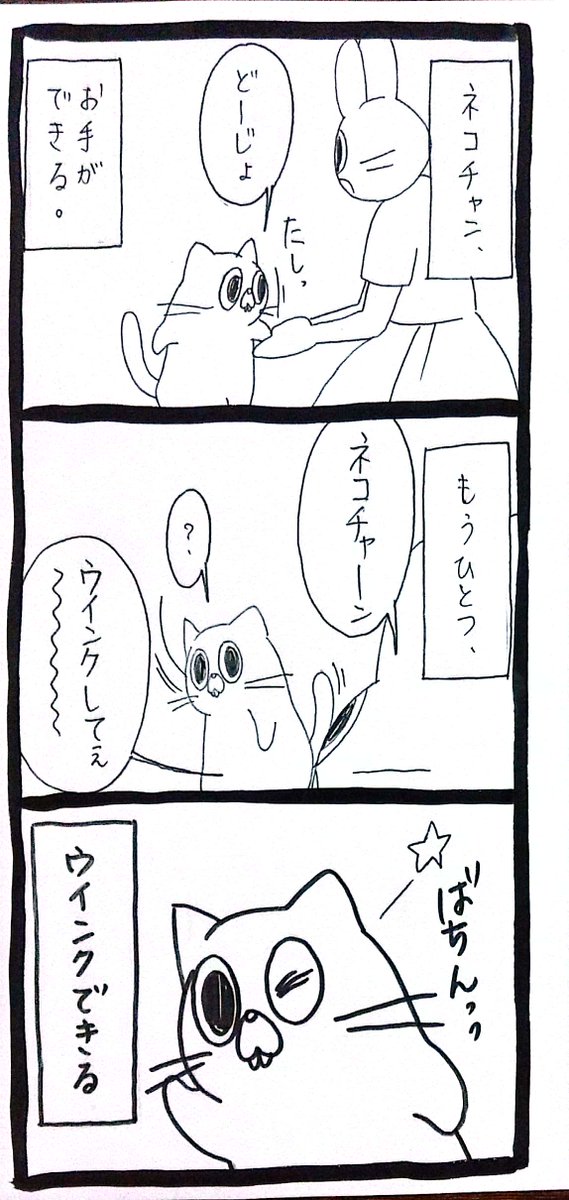 ネコチャン、
どーじょ
たしっ
お手が
できる。
もうひとつ、
ネコチャーン
?
ウインクしてぇ
ばちんッッ
ウインクできる